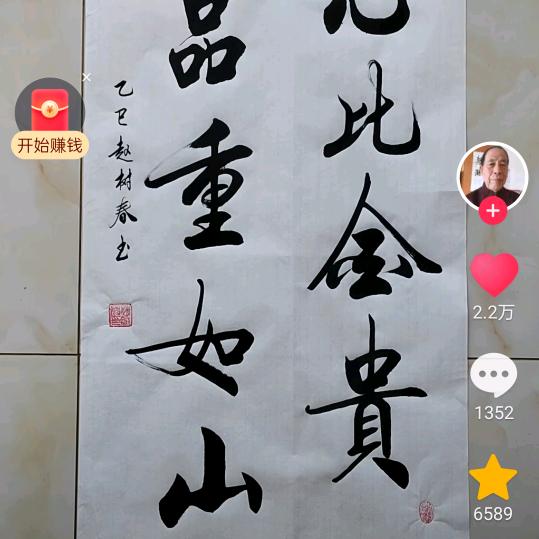 比金貴
品重如山
乙巳赵树春书
开始赚钱
2.2万
1352
6589